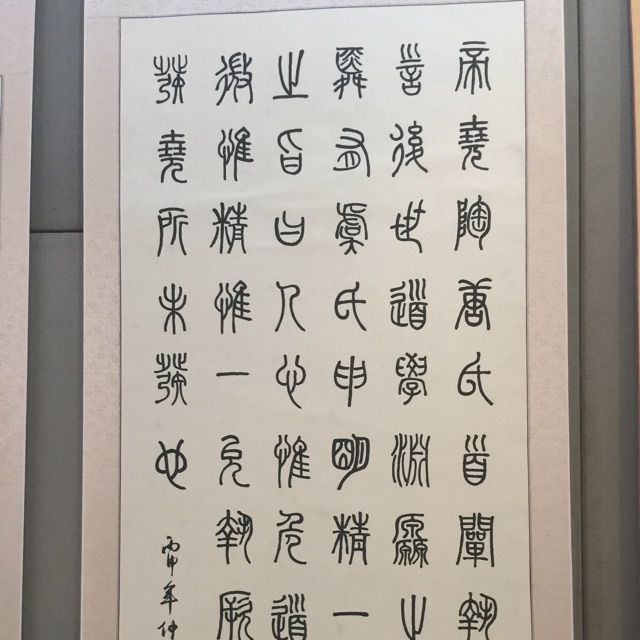 帝堯陶唐氏首闡執
言後世道學淵源之
舜有虞氏申明精一
之旨曰人心惟危道
微惟精惟一允執厥
發堯所未發也
丙申年仲